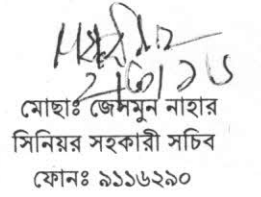 মোছাঃ জেসমুন নাহার
সিনিয়র সহকারী সচিব
ফোনঃ ৯১১৬২৯০